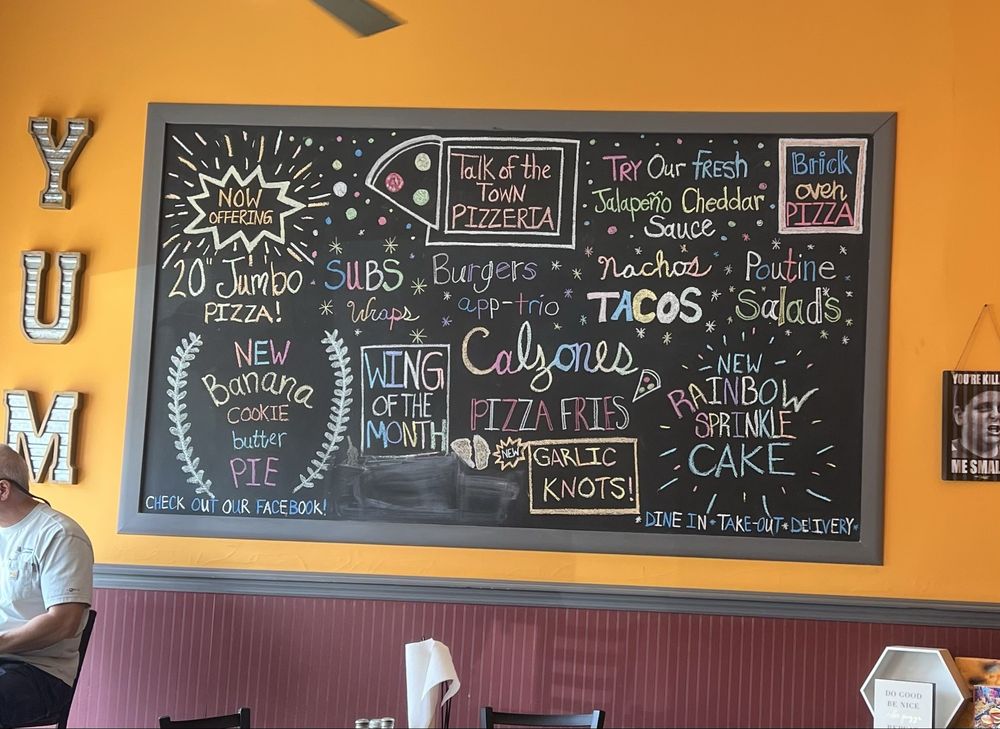 Y
U
M
NOW
OFFERING
20" Jumbo
PIZZA!
Talk of the
Town
PIZZERIA
TRY Our fresh
Jalapeño Cheddar
Sauce
Brick
oven
PIZZA
SUBS
Wraps
Burgers
app-trio
nachos
TACOS
Poutine
Salads
NEW
Banana
COOKIE
butter
PIE
WING
OF THE
MONTH
Calzones
PIZZA FRIES
NEW
GARLIC
KNOTS!
NEW
RAINBOW
SPRINKLE
CAKE
CHECK OUT OUR FACEBOOK!
*DINE IN*TAKE-OUT*DELIVERY*
YOU'RE KILL
ME SMAL
DO GOOD
BE NICE